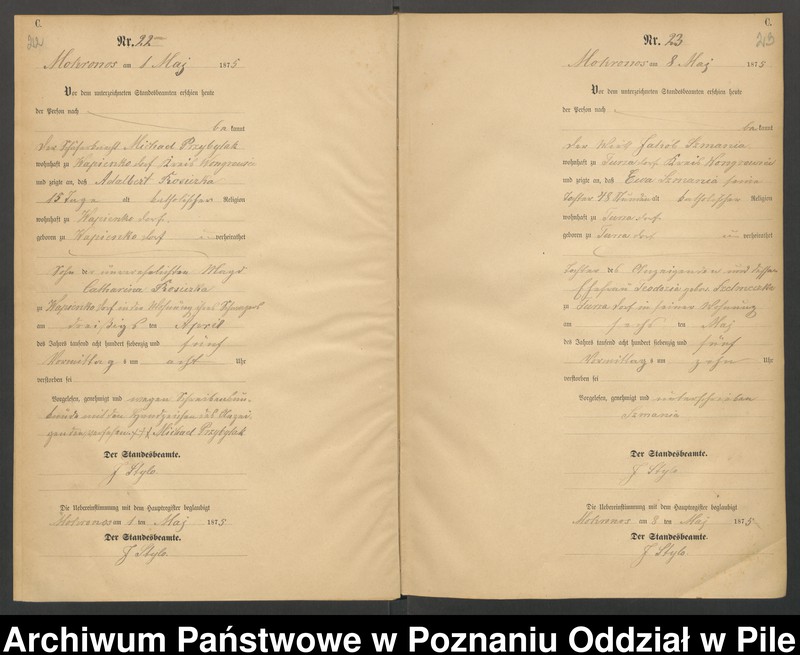 C.
22
Nr. 22
Mokronos am 1 Maj 1875
Vor dem unterzeichneten Standesbeamten erschien heute
der Person nach
bekannt
der Michael Przybylak
wohnhaft zu Wapienko dorf Kreis Wongrowic
und zeigte an, daß Adalbert Kosicka
15 Tage alt katholischer Religion
wohnhaft zu Wapienko dorf,
geboren zu Wapienko dorf unverheirathet
Sohn der unverehelichten Magd
Catharina Kosicka
zu Wapienko dorf in der Wohnung ihres
am dreißigs ten April
des Jahres tausend acht hundert siebenzig und fünf
Vormittag s um acht Uhr
verstorben sei
Vorgelesen, genehmigt und wegen
mit dem Handzeichen des Anzei-
genden versehen +++ Michael Przybylak
Der Standesbeamte.
J Stylo
Die Uebereinstimmung mit dem Hauptregister beglaubigt
Mokronos am 1 ten Maj 1875
Der Standesbeamte.
J Stylo
C.
23
Nr. 23
Mokronos am 8 Maj 1875
Vor dem unterzeichneten Standesbeamten erschien heute
der Person nach
bekannt
der Wirth Jakób Szmania
wohnhaft zu Turza dorf Kreis Wongrowic
und zeigte an, daß Ewa Szmania seine
Tochter 48 Stunden alt katholischer Religion
wohnhaft zu Turza dorf
geboren zu Turza dorf unverheirathet
Tochter des Anzeigenden und dessen
Ehefrau gebor.
zu Turza dorf in seiner Wohnung
am sechs ten Maj
des Jahres tausend acht hundert siebenzig und fünf
Vormittag s um zehn Uhr
verstorben sei
Vorgelesen, genehmigt und unterschrieben
Szmania
Der Standesbeamte.
J Stylo
Die Uebereinstimmung mit dem Hauptregister beglaubigt
Mokronos am 8 ten Maj 1875
Der Standesbeamte.
J Stylo
Archiwum Państwowe w Poznaniu Oddział w Pile